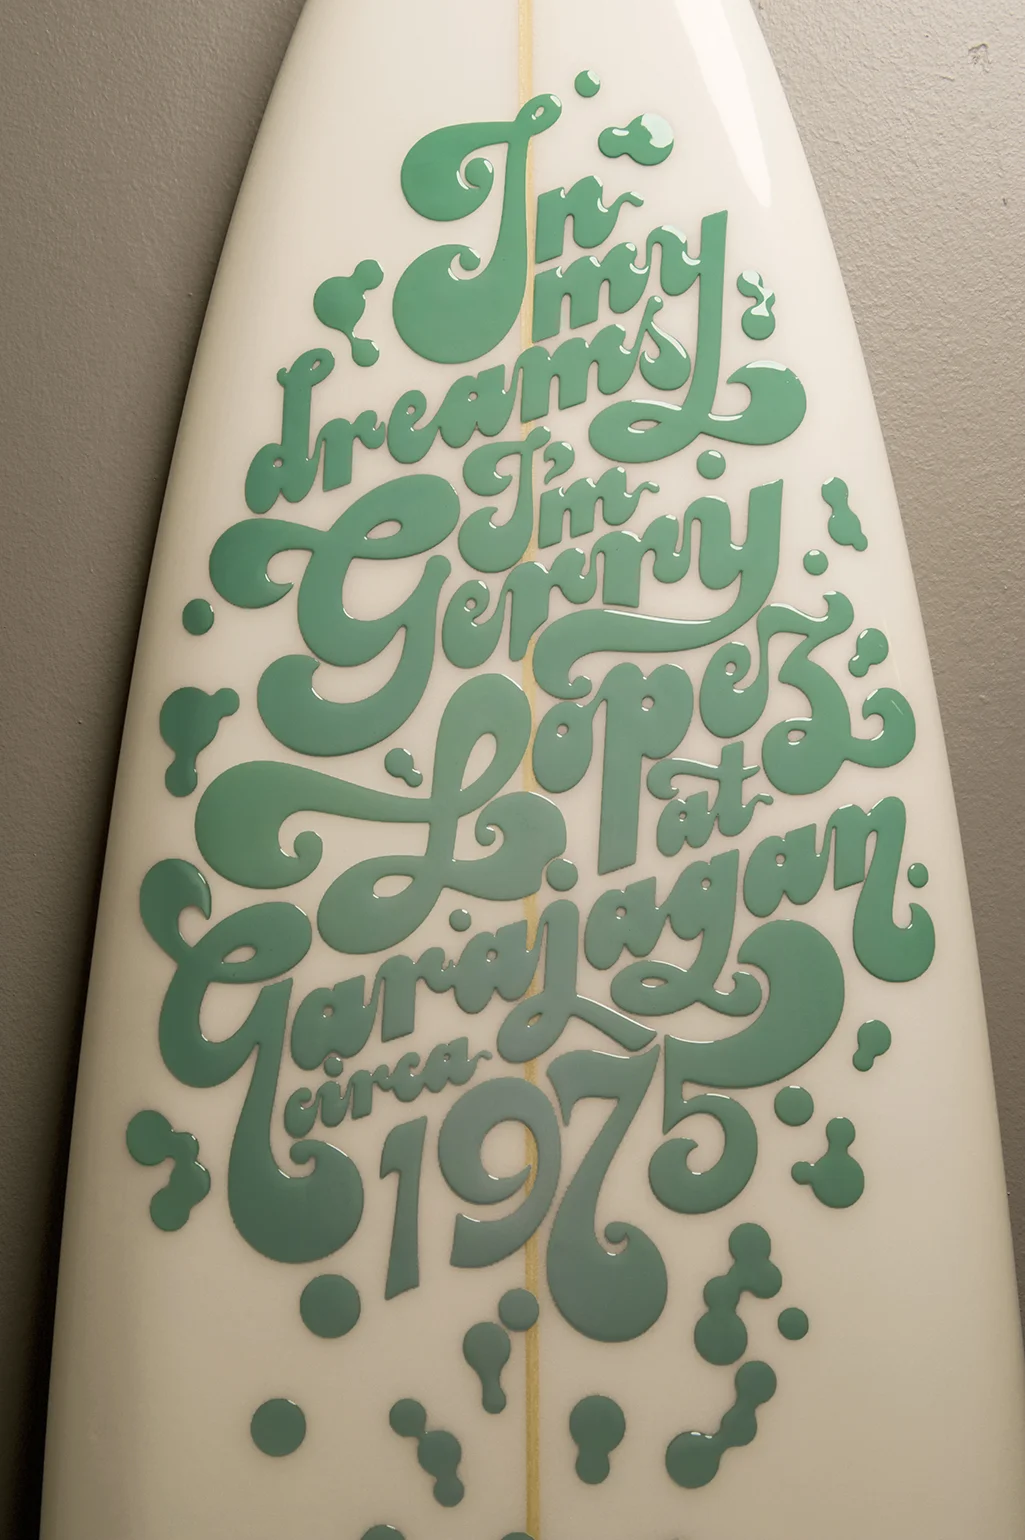 In
my
dreams
I'm
Gerry
Lopez
at
Garajagan
circa
1975